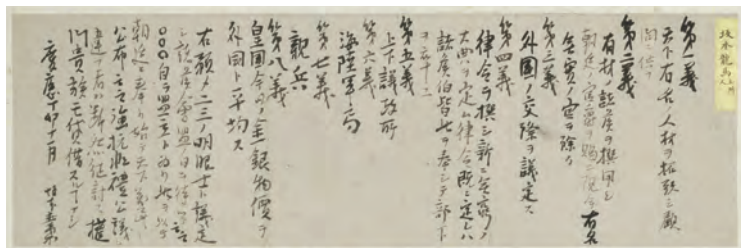 坂本龍馬
第一義
天下有名ノ人材ヲ招致シ顧
問ニ供フ
第二義
有材ノ諸侯ヲ撰用シ
朝廷ノ官爵ヲ賜ヒ現今有名
無実ノ官ヲ除ク
第三義
外国ノ交際ヲ議定ス
第四義
律令ヲ撰シ新ニ無窮ノ
大典ヲ定ム律令既ニ定レハ
諸侯伯皆此ヲ奉シテ部下
ヲ率ユ
第五義
上下議政所
第六義
海陸軍局
第七義
親兵
第八義
皇国今日ノ金銀物価ヲ
外国ト平均ス
右預メ二三ノ明眼士ト議定
シ諸侯会盟ノ日ヲ待ツテ云云
○○○自ラ盟主ト為リ此ヲ以テ
朝廷ニ奉リ始テ天下万民ニ
公布云云強抗非礼公議ニ
違フ者ハ断然征討ス権
門貴族モ貸借スルナシ
慶應丁卯十一月 坂本直柔